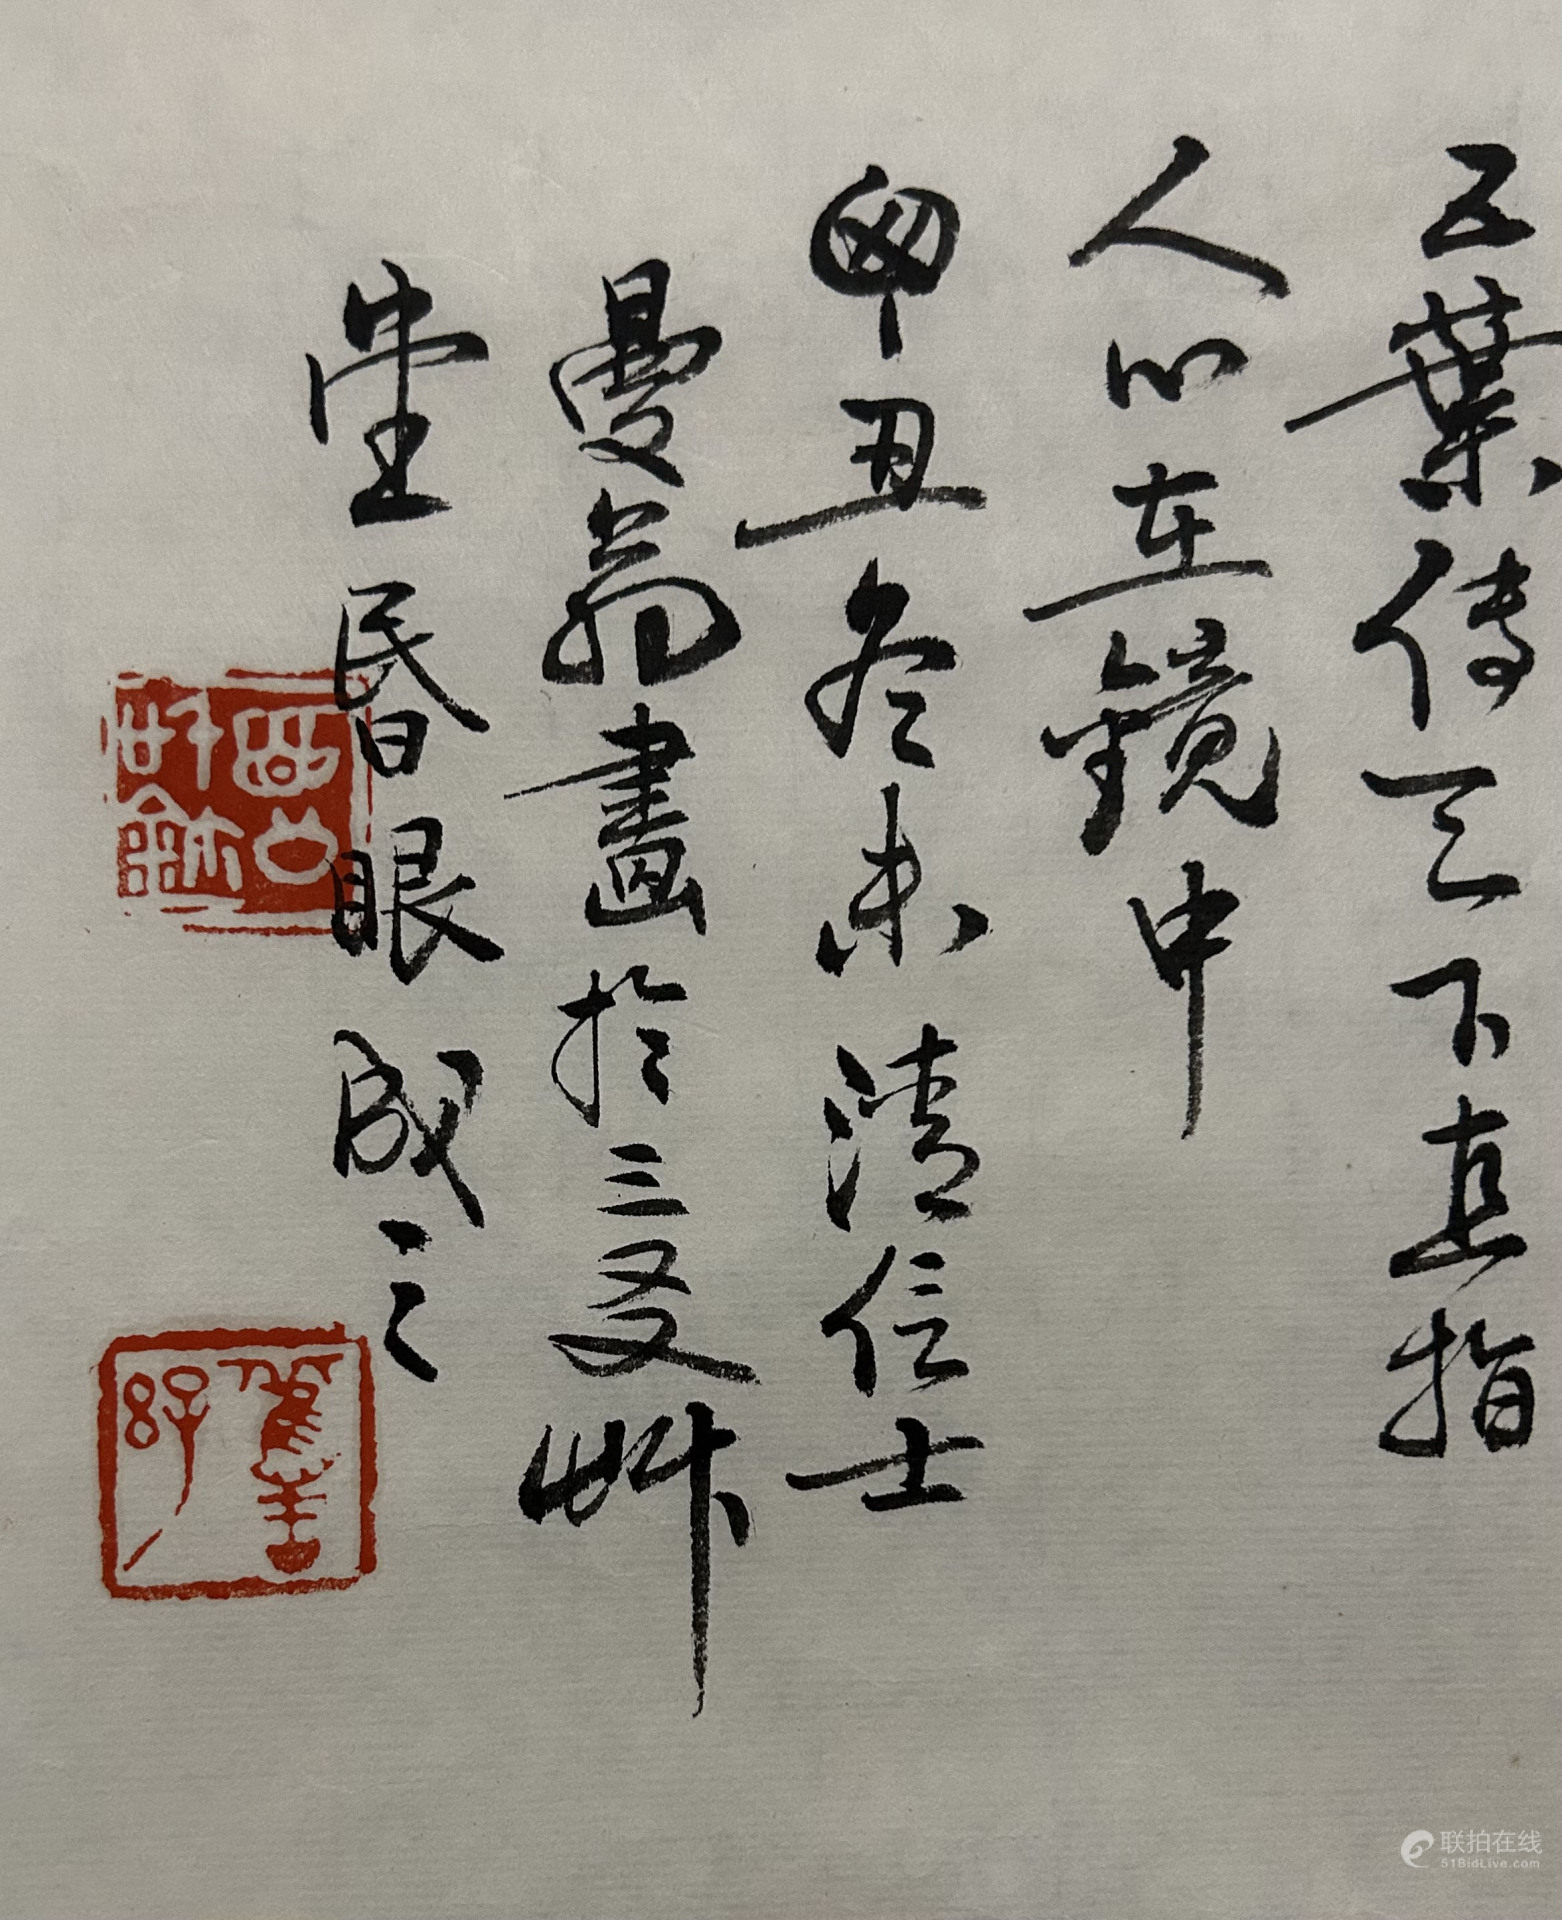 五葉传天下直指
人心在鏡中
丑冬末清信士
曼翁畫於三友艸
堂昬眼成之
联拍在线
51BidLive.com